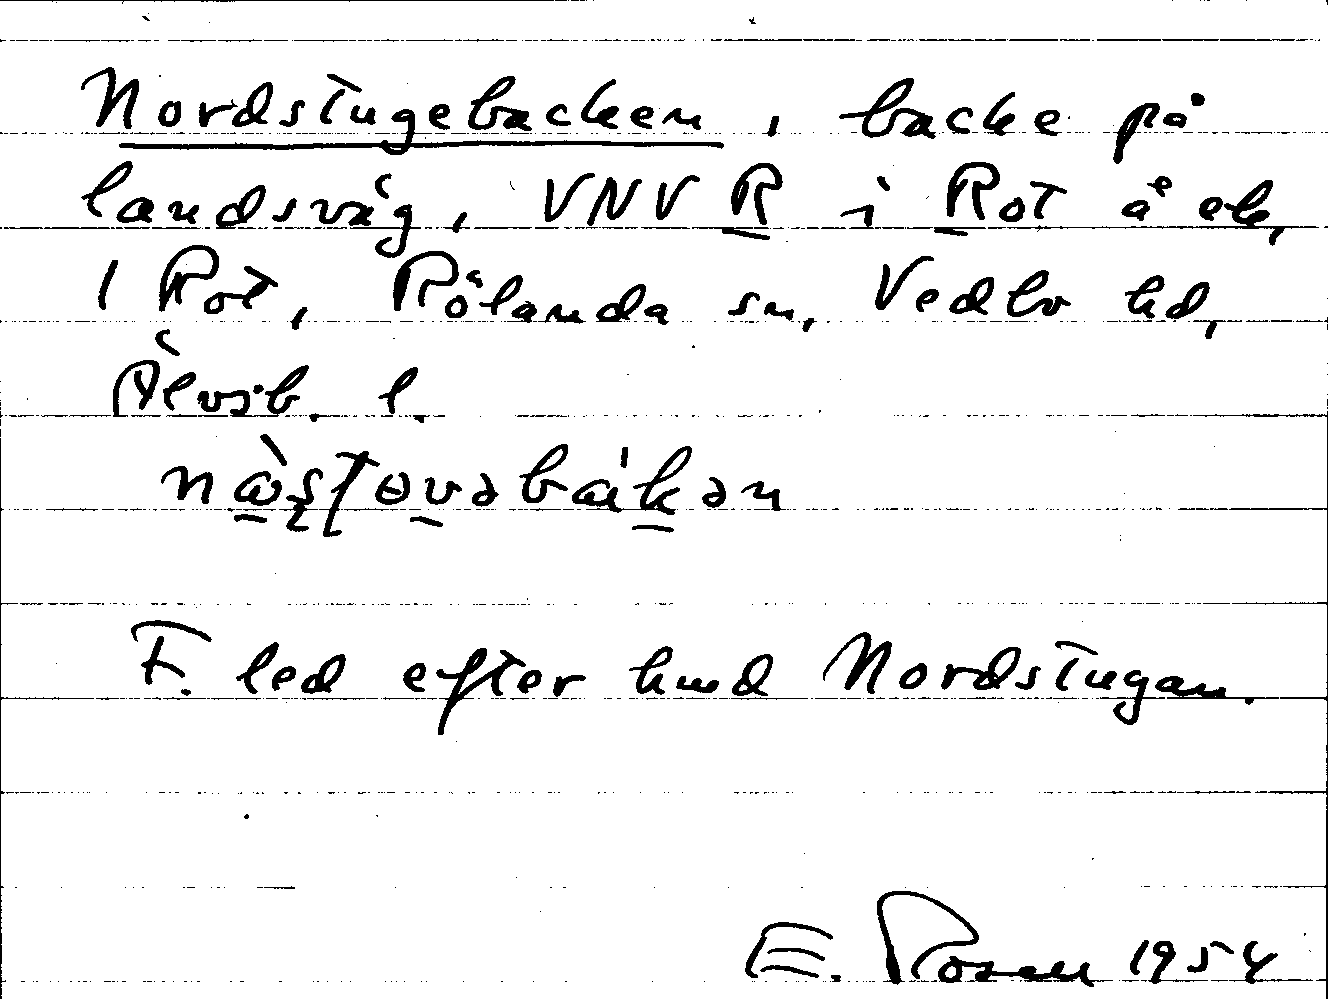 Nordstugebacken, backe på
landsväg, VNV R i Rot å ek,
1 Rot, Rölanda sn, Vedbo hd,
Älvsb. l.
F. led efter hmd Nordstugan.
E. Rosen 1954